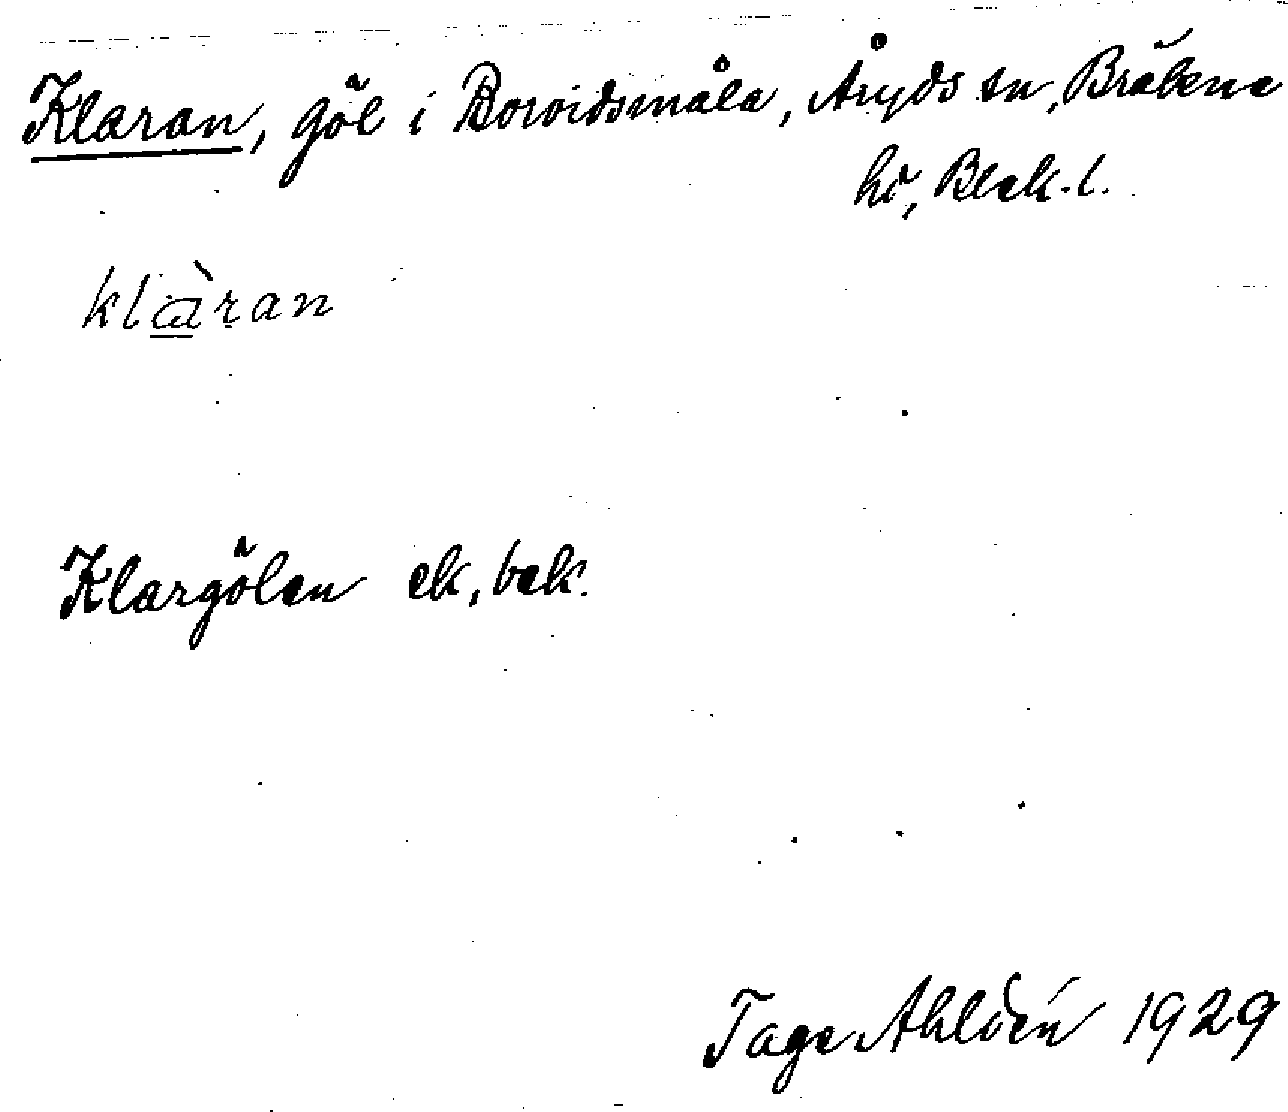 Klaran, göl i Boroidsmåla, Åryds sn, Bräkne
hd, Blek. l.
klàran
Klargölen ek, bek.
Tage Ahldén 1929